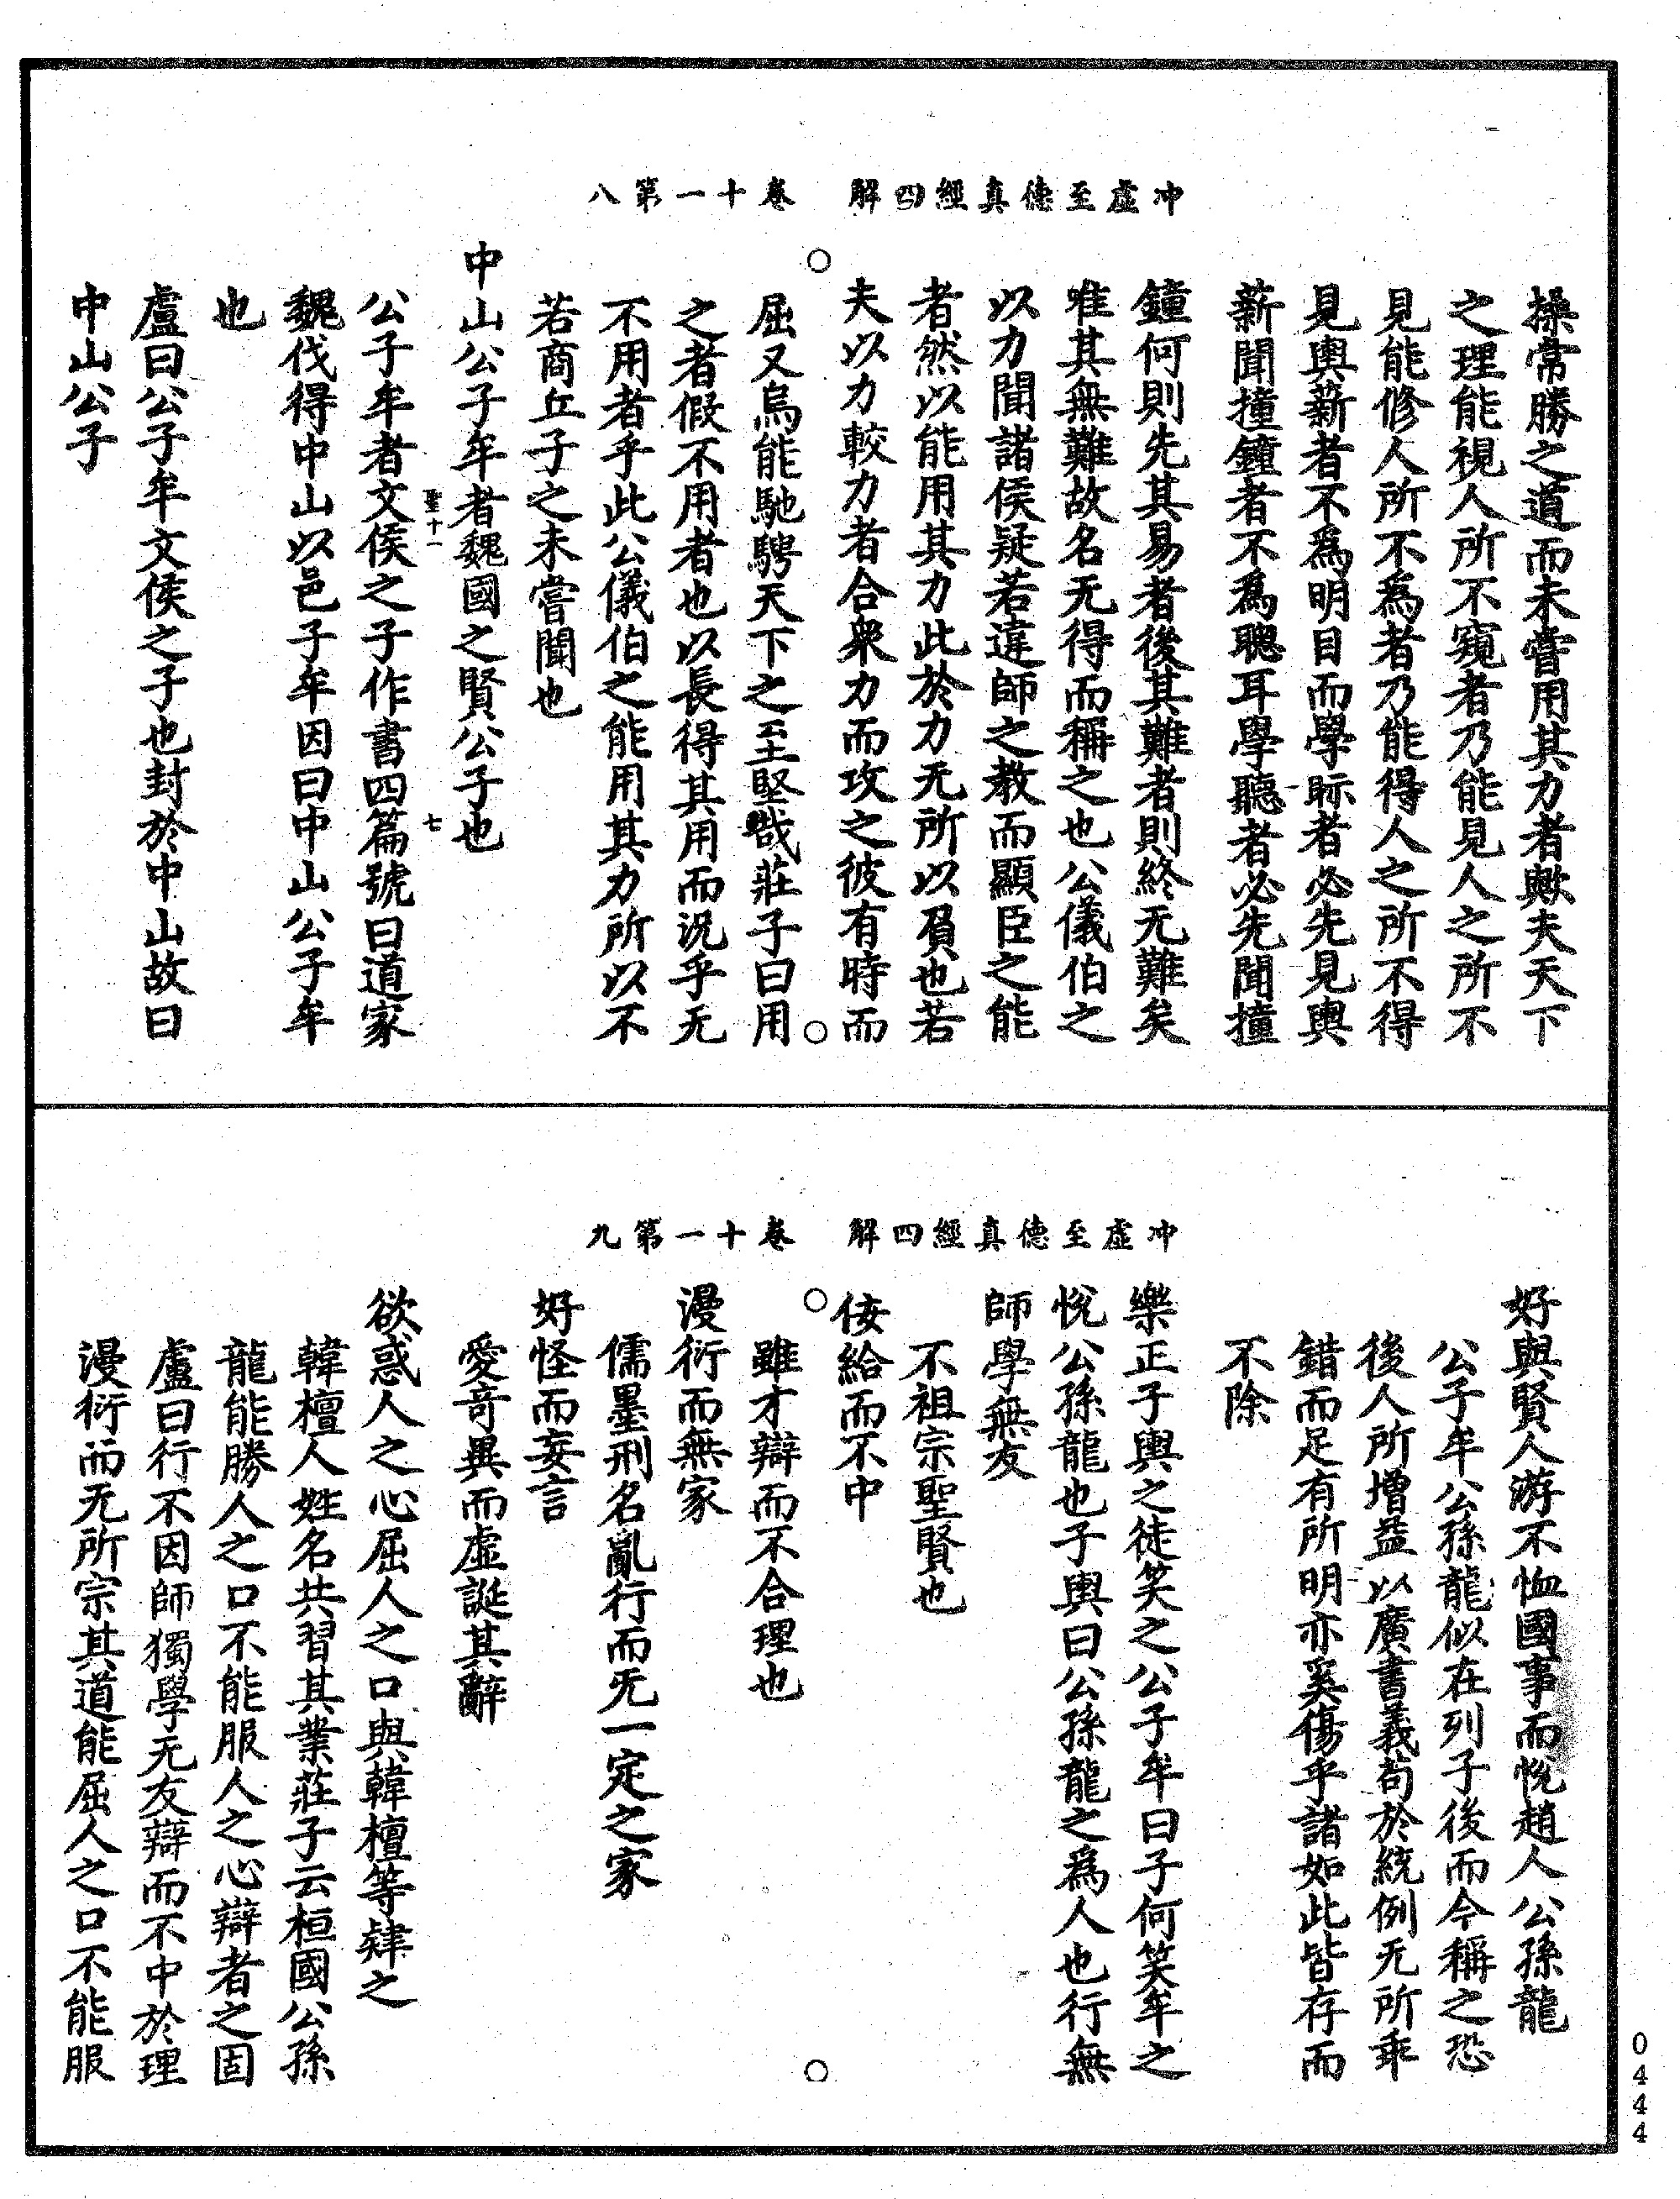 冲虛至德真經四解　卷十一第八
操常勝之道而未嘗用其力者歟夫天下
之理能視人所不窺者乃能見人之所不
見能修人所不為者乃能得人之所不得
見輿薪者不為明目而學眎者必先見輿
薪聞撞鐘者不為聰耳學聽者必先聞撞
鐘何則先其易者後其難者則終无難矣
唯其無難故名无得而稱之也公儀伯之
以力聞諸侯疑若違師之教而顯臣之能
者然以能用其力此於力无所以負也若
夫以力較力者合衆力而攻之彼有時而
屈又烏能馳騁天下之至堅哉莊子曰用
之者假不用者也以長得其用而況乎无
不用者乎此公儀伯之能用其力所以不
若商丘子之未嘗聞也
中山公子牟者魏國之賢公子也
聖十一　七
公子牟者文侯之子作書四篇號曰道家
魏伐得中山以邑子牟因曰中山公子牟
也
盧曰公子牟文侯之子也封於中山故曰
中山公子
冲虛至德真經四解　卷十一第九
好與賢人游不恤國事而悅趙人公孫龍
公子牟公孫龍似在列子後而今稱之恐
後人所增益以廣書義苟於統例无所乖
錯而足有所明亦奚傷乎諸如此皆存而
不除
樂正子輿之徒笑之公子牟曰子何笑牟之
悅公孫龍也子輿曰公孫龍之為人也行無
師學無友
不祖宗聖賢也
佞給而不中
雖才辯而不合理也
漫衍而無家
儒墨刑名亂行而无一定之家
好怪而妄言
愛奇異而虛誕其辭
欲惑人之心屈人之口與韓檀等肄之
韓檀人姓名共習其業莊子云桓國公孫
龍能勝人之口不能服人之心辯者之固
盧曰行不因師獨學无友辯而不中於理
漫衍而无所宗其道能屈人之口不能服
0444